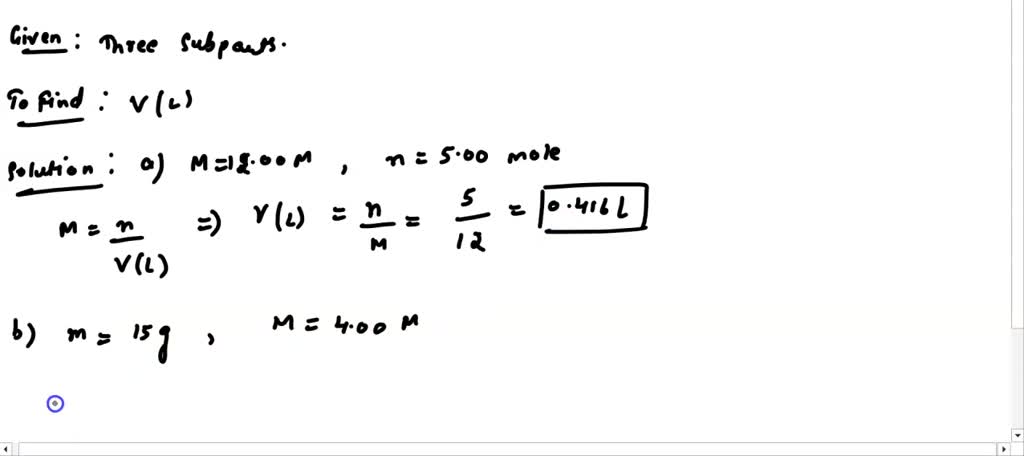 Given : Three Subparts.
To Find : V(L)
Solution : a) M=12.00 M , n = 5.00 mole
M = n/V(L) => V(L) = n/M = 5/12 = 0.416 L
b) m = 15g , M = 4.00 M